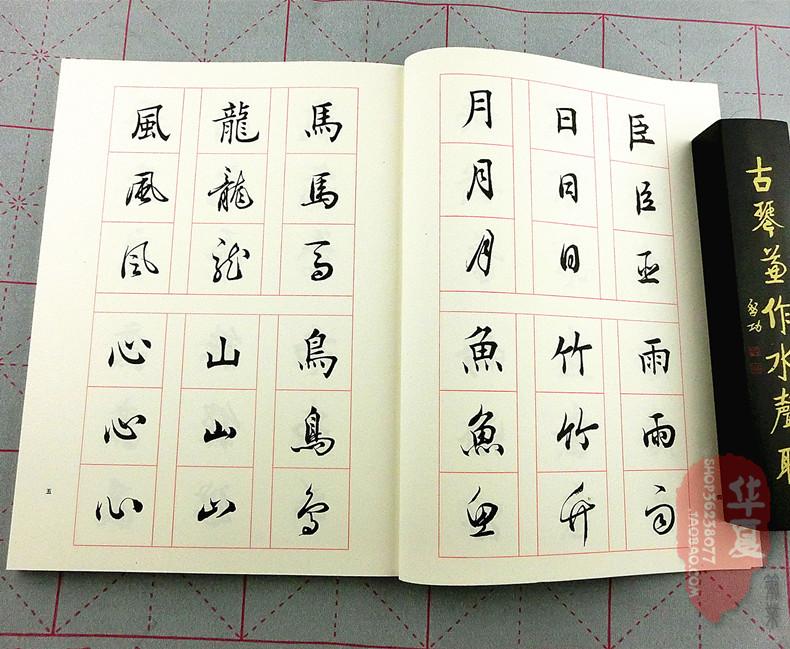 臣臣臣
日日日
月月月
雨雨雨
竹竹竹
魚魚魚
馬馬馬
龍龍龍
風風風
鳥鳥鳥
山山山
心心心
五
古琴兼作水聲
啓功
华夏
SHOP36238077
TAOBAO.COM